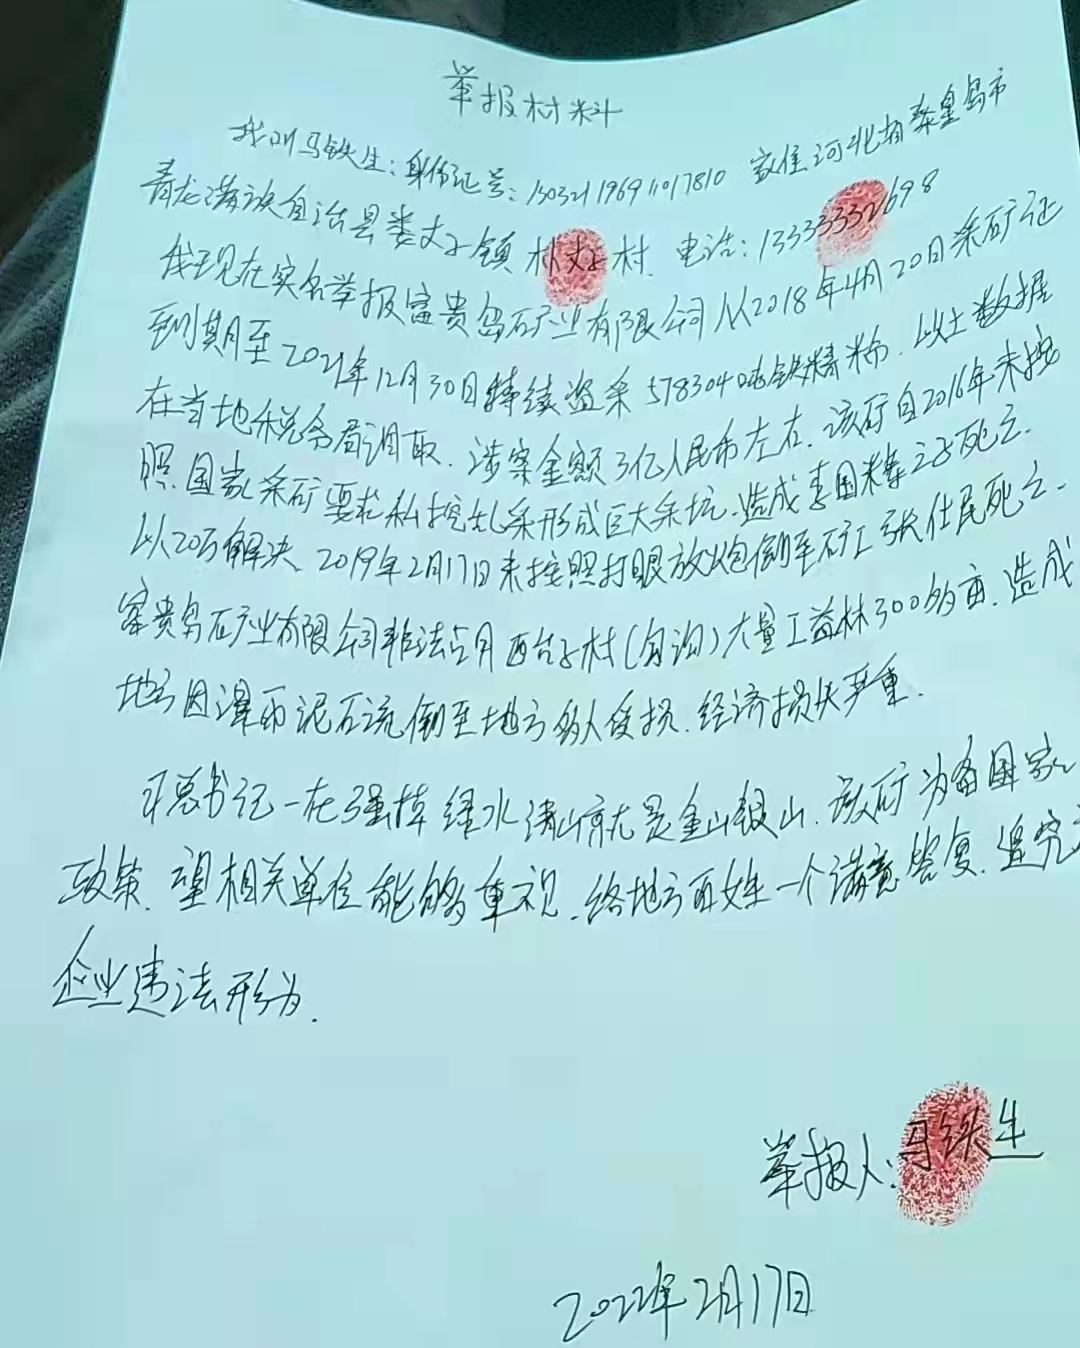 举报材料
我叫马铁生：身份证号：130321196911017810 家住河北省秦皇岛市
青龙满族自治县娄丈子镇 村. 电话：13333332698
我现在实名举报富贵鸟石矿业有限公司从2018年4月20日采矿证
到期至2021年12月30日持续盗采578304吨铁精粉. 以上数据
在当地税务局调取. 涉案金额3亿人民币左右. 该矿自2016年未按
照国家采矿要求私挖乱采形成巨大采坑. 造成李国 之子死亡.
以20万解决. 2019年2月17日未按照打眼放炮倒至矿工张仕民死亡.
富贵鸟石矿业有限公司非法占用西台子村( 沟)大量工益林300多亩. 造成
地方因瀑雨泥石流倒至地方多人受损. 经济损失严重.
习总书记一在强掉绿水清山就是金山银山. 该矿为备国家
政策. 望相关单位能够重视. 给地方百姓一个满意答复. 追究
企业违法形为.
举报人：马铁生
2022年2月17日